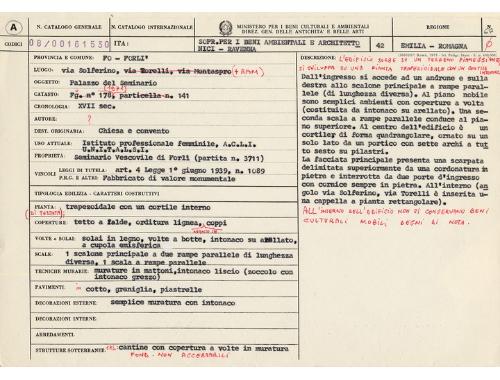 A
N. CATALOGO GENERALE
N. CATALOGO INTERNAZIONALE
MINISTERO PER I BENI CULTURALI E AMBIENTALI
DIREZ. GEN. DELLE ANTICHITÀ E BELLE ARTI
REGIONE
N.
CODICI
08/00161550
ITA:
SOPR.PER I BENI AMBIENTALI E ARCHITETTO
NICI - RAVENNA
42
EMILIA - ROMAGNA
PROVINCIA E COMUNE: FO - FORLI'
LUOGO: via Solferino, via Torelli, via Montaspro
OGGETTO: Palazzo del Seminario
CATASTO: Fg. n° 178, particella n. 141
CRONOLOGIA: XVII sec.
AUTORE: ?
DEST. ORIGINARIA: Chiesa e convento
USO ATTUALE: Istituto professionale femminile, A.C.L.I.
U.N.I.T.A.L.S.I.
PROPRIETÀ: Seminario Vescovile di Forlì (partita n. 3711)
VINCOLI LEGGI DI TUTELA: art. 4 Legge 1° giugno 1939, n. 1089
P.R.G. E ALTRI: Fabbricato di valore monumentale
TIPOLOGIA EDILIZIA - CARATTERI COSTRUTTIVI
PIANTA: trapezoidale con un cortile interno
COPERTURE: tetto a falde, orditura lignea, coppi
VOLTE o SOLAI: solai in legno, volte a botte, intonaco su arellato,
a cupola emisferica
SCALE: 1 scalone principale a due rampe parallele di lunghezza
diversa, 1 scala a rampe parallele
TECNICHE MURARIE: murature in mattoni, intonaco liscio (zoccolo con
intonaco grezzo)
PAVIMENTI: in cotto, graniglia, piastrelle
DECORAZIONI ESTERNE: semplice muratura con intonaco
DECORAZIONI INTERNE:
ARREDAMENTI:
STRUTTURE SOTTERRANEE: cantine con copertura a volte in muratura
FOND. NON ACCERTABILI
DESCRIZIONE: L'EDIFICIO SORGE SU UN TERRENO PIANEGGIANTE
SI SVILUPPA SU UNA PIANTA TRAPEZOIDALE CON UN CORTILE
Dall'ingresso si accede ad un androne e sulla
destra allo scalone principale a rampe paral-
lele (di lunghezza diversa). Al piano mobile
sono semplici ambienti con coperture a volta
(costituita da intonaco su arellato). Una se-
conda scala a rampe parallele conduce al pia-
no superiore. Al centro dell'edificio è un
cortile di forma quadrangolare, ornato su un
solo lato da un portico con sette archi a tut
to sesto su pilastri.
La facciata principale presenta una scarpata
delimitata superiormente da una cordonatura in
pietra e interrotta da due porte d'ingresso
con cornice sempre in pietra. All'interno (an
golo via Solferino, via Torelli) è inserita u-
na cappella a pianta rettangolare).
ALL'INTERNO DELL'EDIFICIO NON SI CONSERVANO BENI
CULTURALI MOBILI DEGNI DI NOTA.